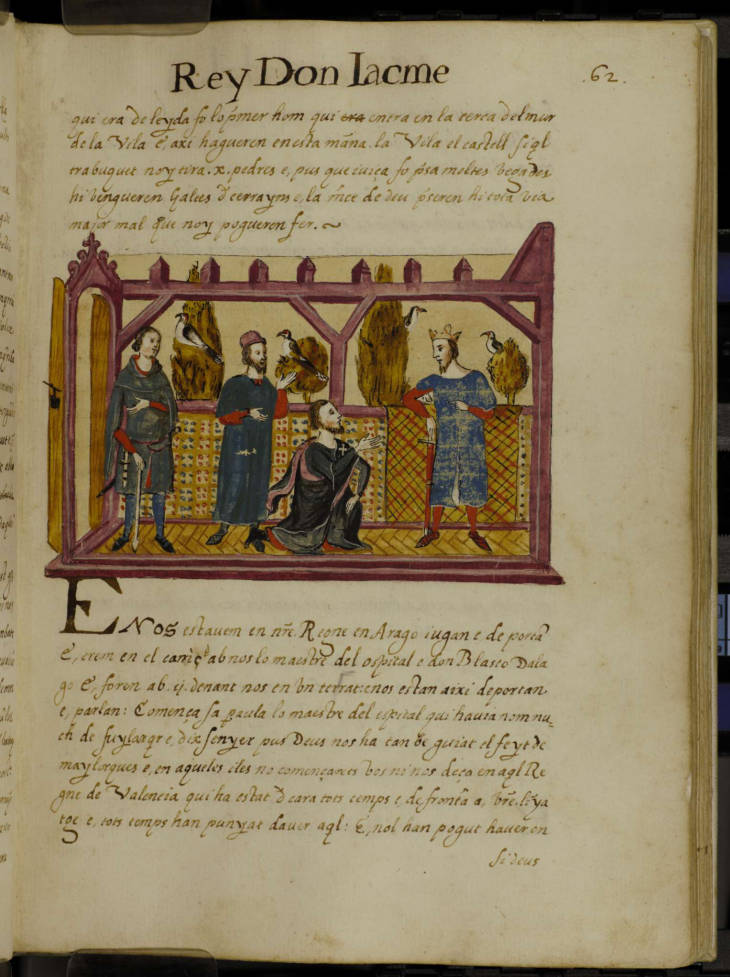 Rey Don Iacme
.62.
qui era de leyda fo lo pmer hom qui era entra en la cerca del mur
de la Vila e, axi hagueren en esta mãna. la Vila el castell si ql
trabuquet noy tira .x. pedres e, pus que iuiça fo psa moltes vegades
hi vingueren Galees de serrayns e, la mce de deu pseren hi tota via
major mal que noy pogueren fer. ~
ENOS estauem en nr̃e. Regne en Arago iugan e deportã
E, erem en el ab nos lo maestre del ospital e don Blasco Dala
go E, foren ab .ij. denant nos en vn terrat: e nos estan aixi deportan
e, parlan: Comença sa paula lo maestre del espital qui hauia nom nu
ch de e, dix senyer pus Deus nos ha tan be guiat el feyt de
maylorques e, en aqueles iles no començarets vos ni nos deça en aql Re
gne de Valencia qui ha estat d cara tots temps e, de frontã a, vr̃e. liya
tge e, tots temps han punyat dauer aql: E, nol han pogut hauer. en
Si deus